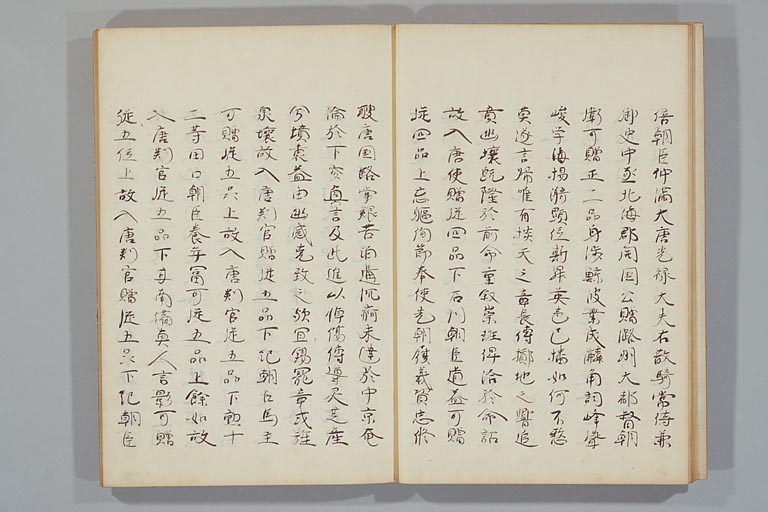 倍朝臣仲滿大唐光禄大夫右散騎常侍兼
御史中丞北海郡開国公贈潞州大都督朝
衡可贈正二品身渉鯨波業成麟角詞峰聳
峻学海揚漪顕位斯昇英声已播如何不憗
莫遂言帰唯有掞天之章長傳擲地之響追
賁幽壤既隆於前命重叙崇班俾洽於命詔
故入唐使贈従四品下石川朝臣道益可贈
従四品上忘軀徇節奉使先朝義質忠修
聘唐国路艱苦沉痾未達於中京奄
淪於下言及此追以傷
墳幽感克致之宜錫寵章式旌
泉壤故入唐判官贈従五品下紀朝臣馬主
可贈従五品上故入唐判官従五品下勲十
二等田口朝臣養年冨可従五品上餘如故
入唐判官従五品下甘南備真人言影可贈
従五位上故入唐判官贈従五品下紀朝臣